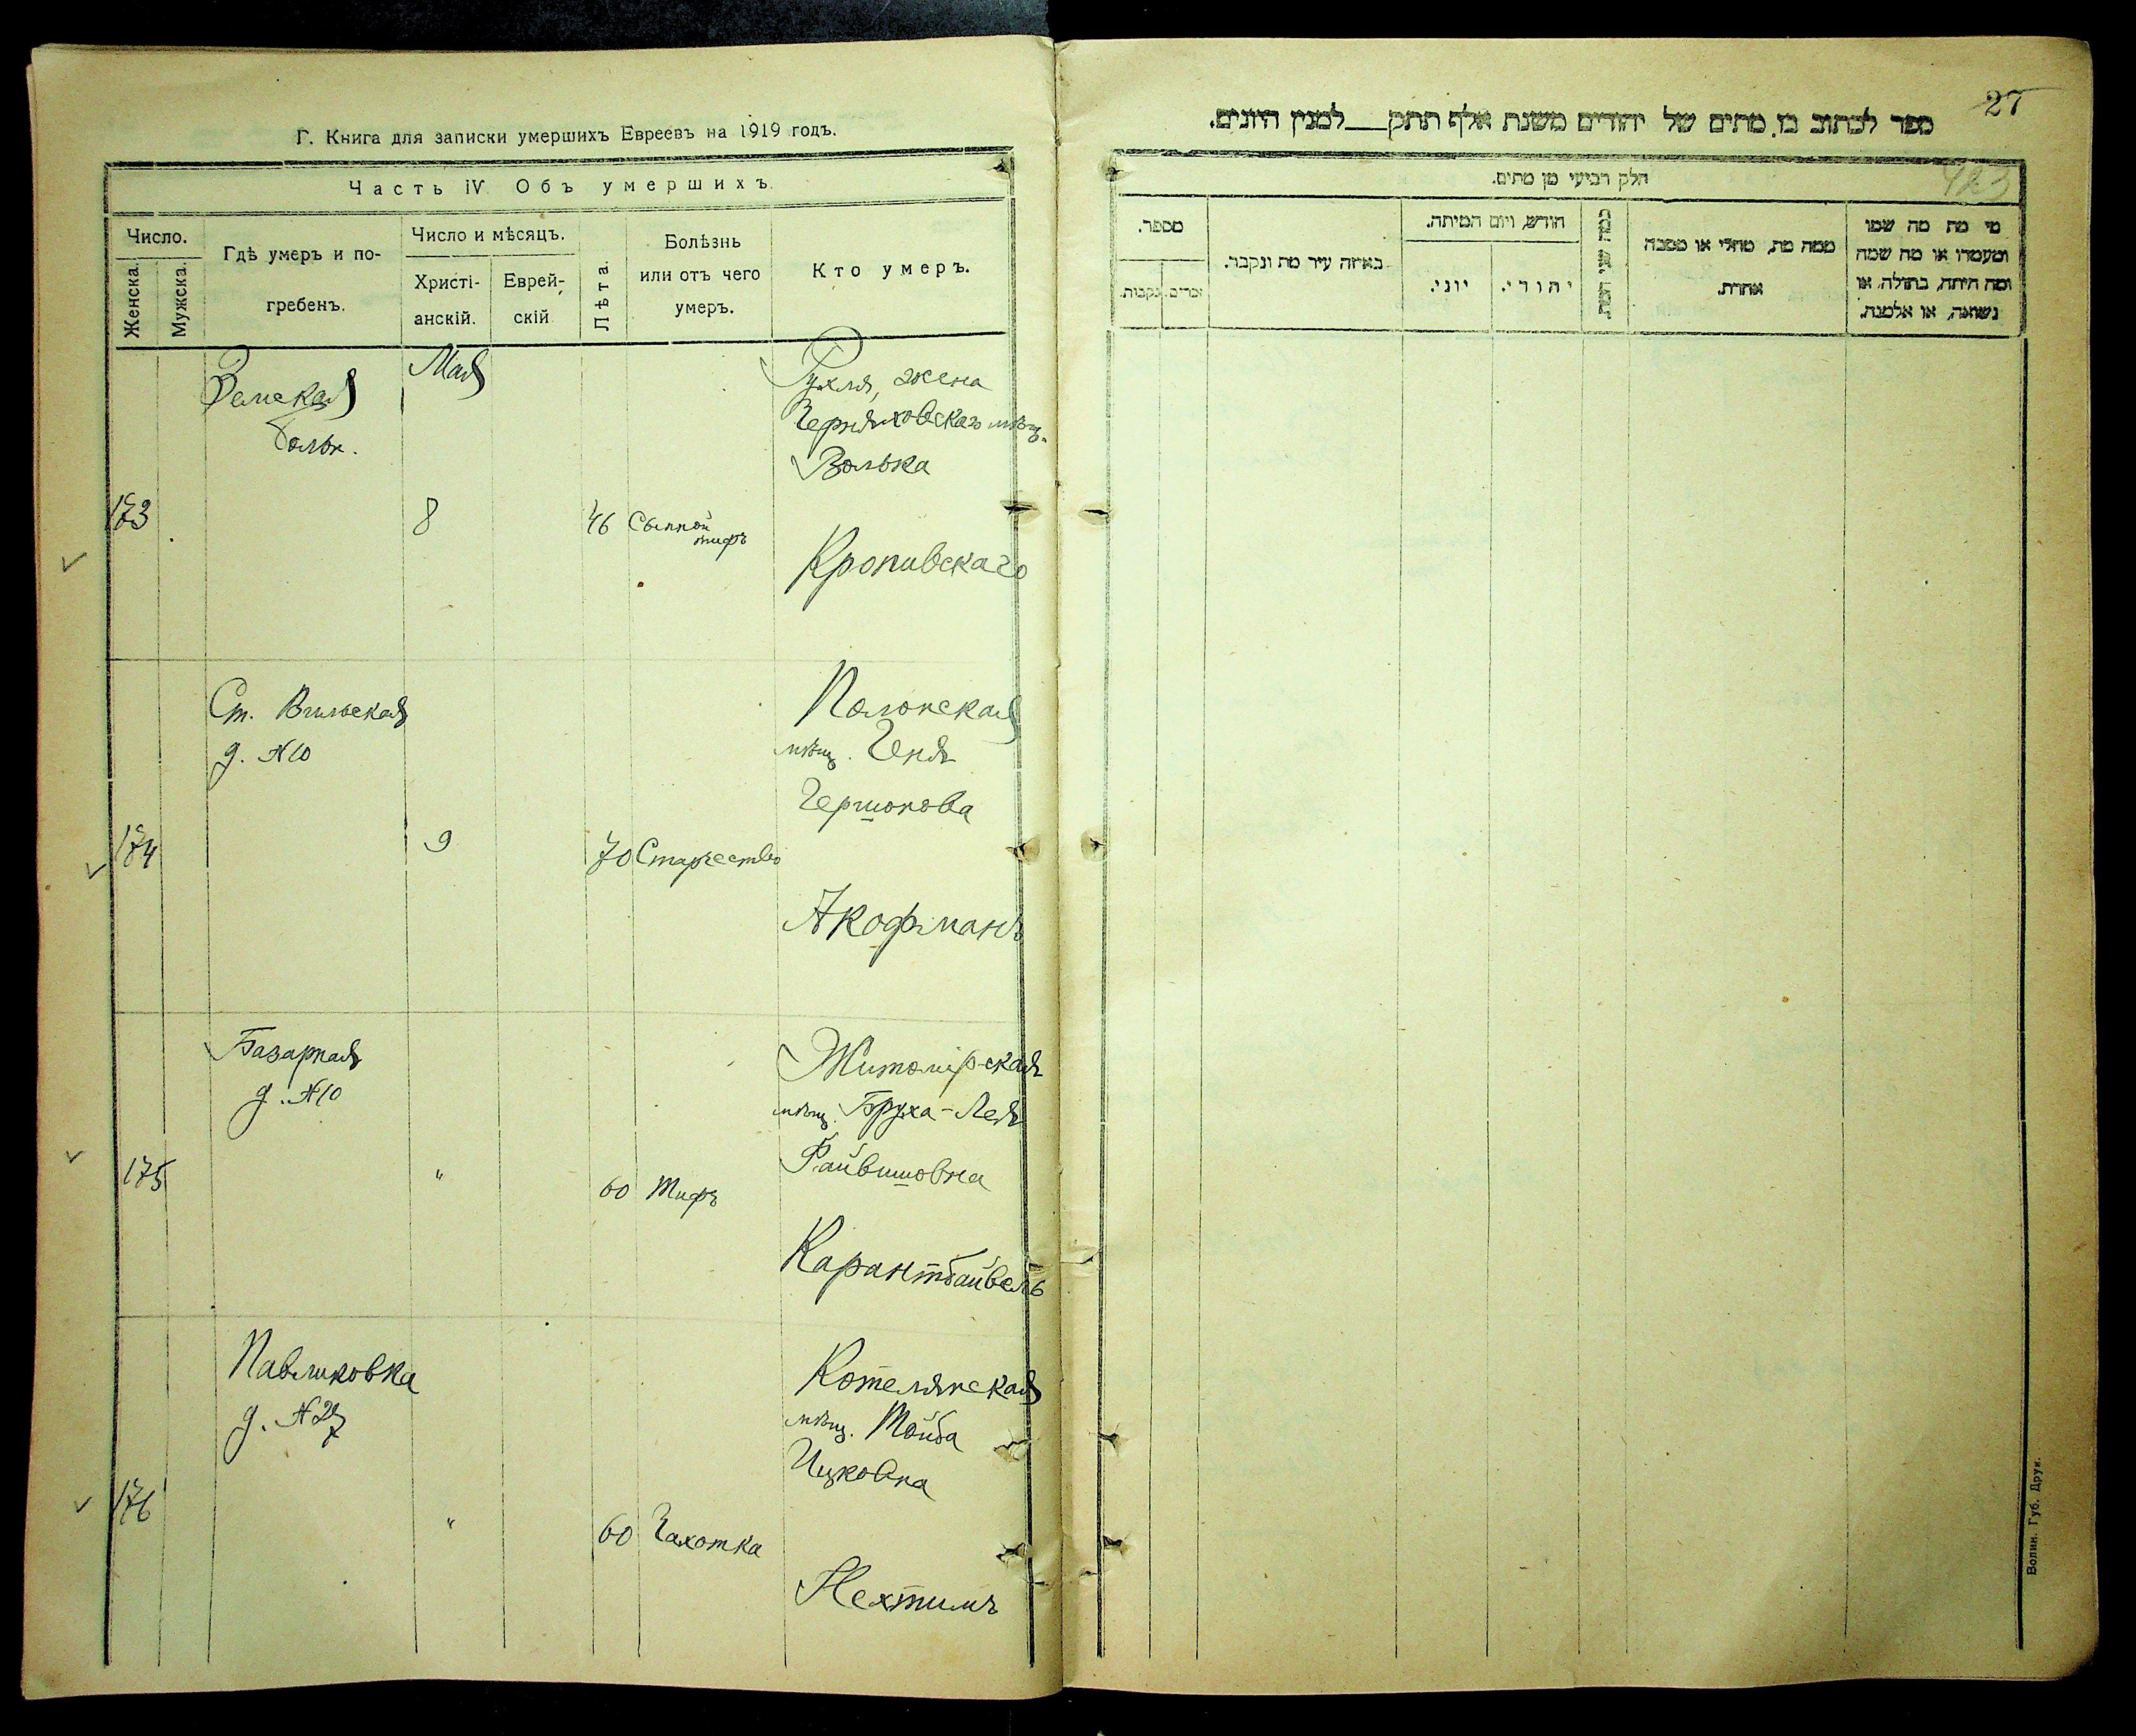 Г. Книга для записки умершихъ Евреевъ на 1919 годъ.
Часть IV Объ умершихъ.
Число.
Женска.
Мужска.
Гдѣ умеръ и по-
гребенъ.
Число и мѣсяцъ.
Христі-
анскій.
Еврей-
скій
Лѣта.
Болѣзнь
или отъ чего
умеръ.
Кто умеръ.
173
Земская
больн.
Мая
8
46
Сыпной
тифъ
Рухля, жена
Черняховскаго мѣщ.
Волька
Кропивскаго
174
Ст. Вильская
д. №10
9
70
Старчество
Полонская
мѣщ. Геня
Гершонова
Акофманъ
175
Базарная
д. №10
"
60
Тифъ
Житомірская
мѣщ. Бруха-Лея
Файвишовна
Карантбайвель
176
Павликовка
д. №27
"
60
Чахотка
Котелянская
мѣщ. Тойба
Ицковна
Нехтимъ
27
ספר לכתוב בו מתים של יהודים משנת אלף תתק___למנין היונים.
423
חלק רביעי מן מתים.
מי מת מה שמו
ומעמדו או מה שמה
ומה היתה, בתולה, או
נשואה, או אלמנה.
ממה מת, מחלי או מסבה
אחרת.
כמה שני המת
חודש, ויום המיתה.
יהודי.
יוני.
באיזה עיר מת ונקבר.
מספר.
זכרים
נקבות.
Волин. Губ. Друк.